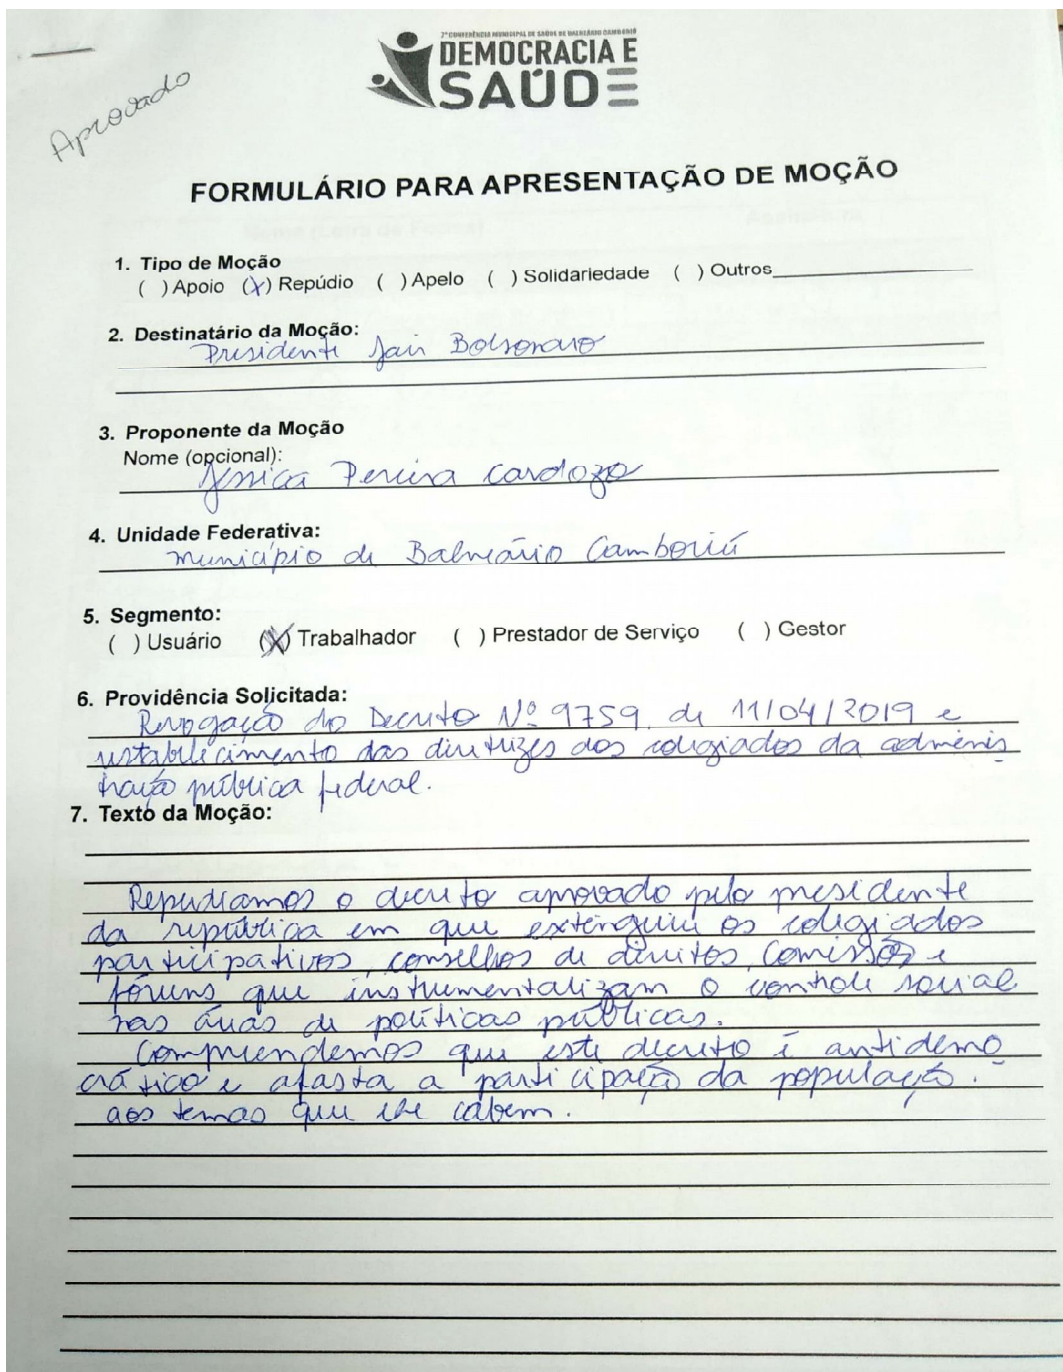 7ª CONFERÊNCIA MUNICIPAL DE SAÚDE DE BALNEÁRIO CAMBORIÚ
DEMOCRACIA E
SAÚDE
Aprovado
FORMULÁRIO PARA APRESENTAÇÃO DE MOÇÃO
1. Tipo de Moção
( ) Apoio (X) Repúdio ( ) Apelo ( ) Solidariedade ( ) Outros
2. Destinatário da Moção:
Presidente Jair Bolsonaro
3. Proponente da Moção
Nome (opcional):
Jessica Pereira Cardozo
4. Unidade Federativa:
Município de Balneário Camboriú
5. Segmento:
( ) Usuário (X) Trabalhador ( ) Prestador de Serviço ( ) Gestor
6. Providência Solicitada:
Revogação do Decreto Nº 9759, de 11/04/2019 e
restabelecimento das diretrizes dos colegiados da adminis
tração pública federal.
7. Texto da Moção:
Repudiamos o decreto aprovado pelo presidente
da república em que extinguiu os colegiados
participativos, conselhos de direitos, comissões e
fóruns que instrumentalizam o controle social
nas áreas de políticas públicas.
Compreendemos que este decreto é antidemo
crático e afasta a participação da população
aos temas que lhe cabem.